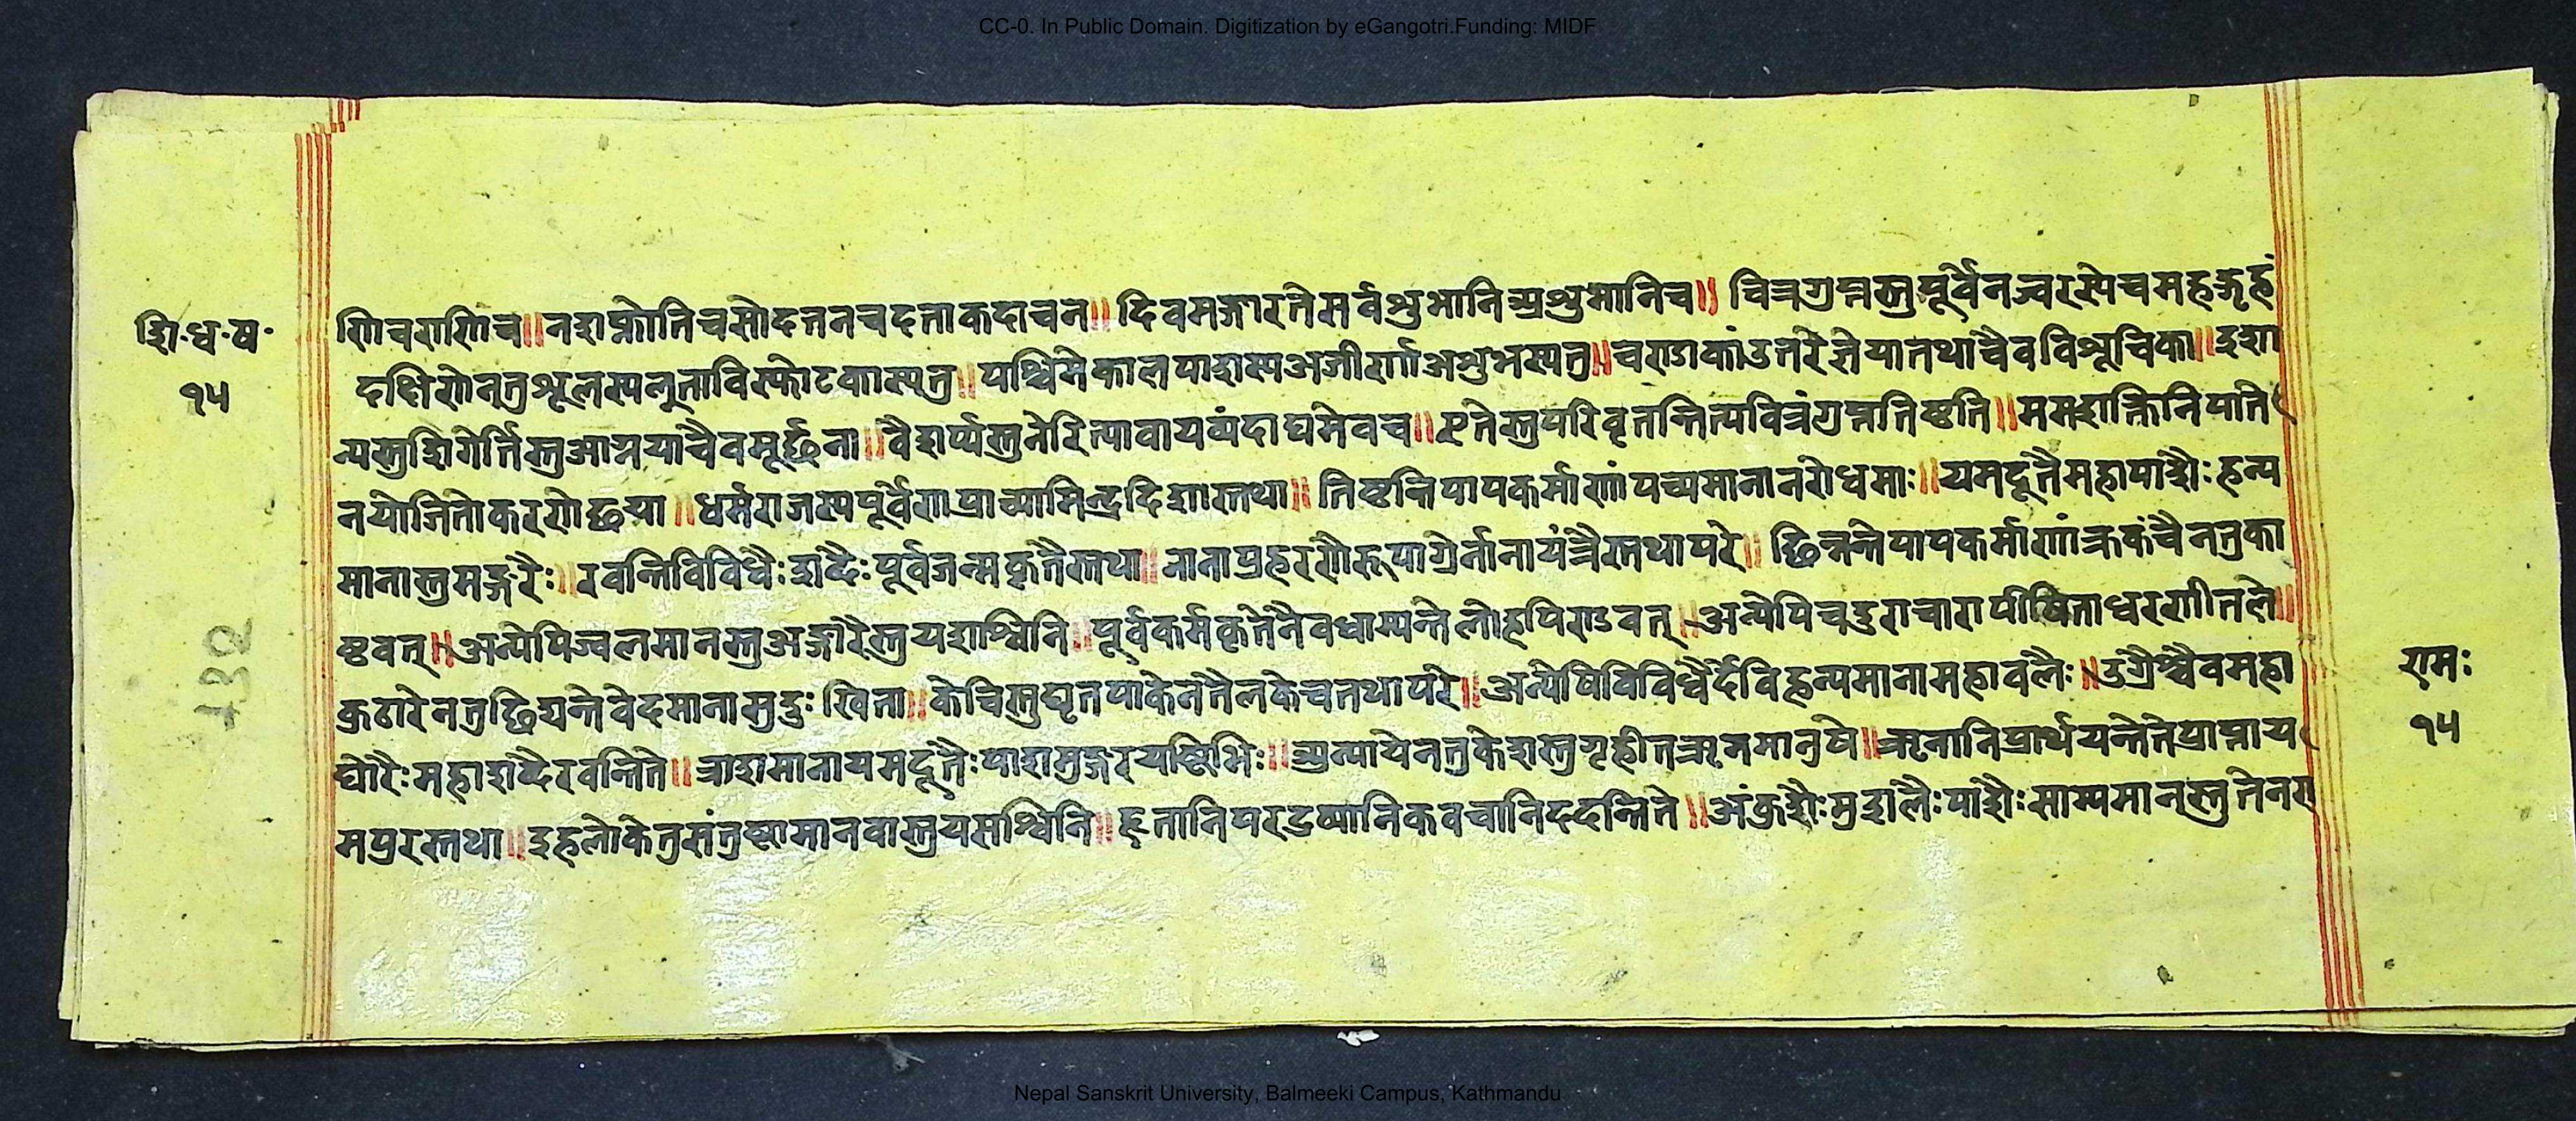 CC-0. In Public Domain. Digitization by eGangotri.Funding: MIDF
शि·ध·ष·
१५
णिचराणिच॥नशक्नोतिचसोदत्तनचदत्ताकदाचन॥दिवसञ्जारतेसर्वशुभानिअशुभानिच॥चित्रगुप्तस्तुपूर्वेनज्वरस्येचमहद्गृहं
दक्षिणेनतुशूलस्यलुताविस्फोटकास्यतु॥पश्चिमेकालपाशस्यअजीर्णअशुभस्यतु॥चराडकांउत्तरेज्ञेयातथाचैवविशूचिका॥इशा
न्यस्तुशिरोर्त्तिस्तुआग्नयाचैवमूर्छना॥ नेरित्यावायव्यंदाघमेवच॥एतेस्तुपरिवृतन्तित्यवित्रंगुप्नतिष्ठति॥
नयोजितोकरणेछया॥धर्मराजस्यपूर्वेणप्राच्यामिन्द्रदिशास्तथा॥तिष्ठन्तिपापकर्माणांपच्यमानानरोधमाः॥यमदूतैमहापाशैःहन्य
मानास्तुमङ्गरैः॥रवन्तिविविधैःशब्दैःपूर्वजन्मकृतैस्तथा॥नानाप्रहरणै नानायंत्रैस्तथापरे॥छिन्नन्तेपापकर्माणांक्रकंचैनतुका
ष्ठवत्॥अन्येपिज्वलमानस्तुअङ्गारैस्तुयशश्विनि॥पूर्वकर्मकृतेनैवधाम्यन्तेलोहपिराडवत्॥अन्येपिचदुराचारापीषिताधरणीतले॥
कुठारेनतुछिद्यन्तेवेदमानासुदुःखिता॥केचित्तुघृतपाकेनतैलकेचतथापरे॥अन्येषिविविधैर्देविहन्यमानामहावलैः॥उग्रैश्चैवमहा
घोरैःमहाशब्दैरवन्तिते॥त्राशमानायमदूतैःपाशमुङ्गरयष्टिभिः॥अन्यायेनतुकेशस्तुगृहीतऋनमानुषे॥ऋनानिप्रार्थयन्तेतेप्राप्नाय
मपुरस्तथा॥इहलोकेतुसंतुष्टामानवास्तुयसश्विनि॥हृतानिपरद्रव्यानिकवचानिददन्तिते॥अंकुशैःमुशलैःपाशैःसाम्यमानस्तुतेन
रामः
१५
132
Nepal Sanskrit University, Balmeeki Campus, Kathmandu